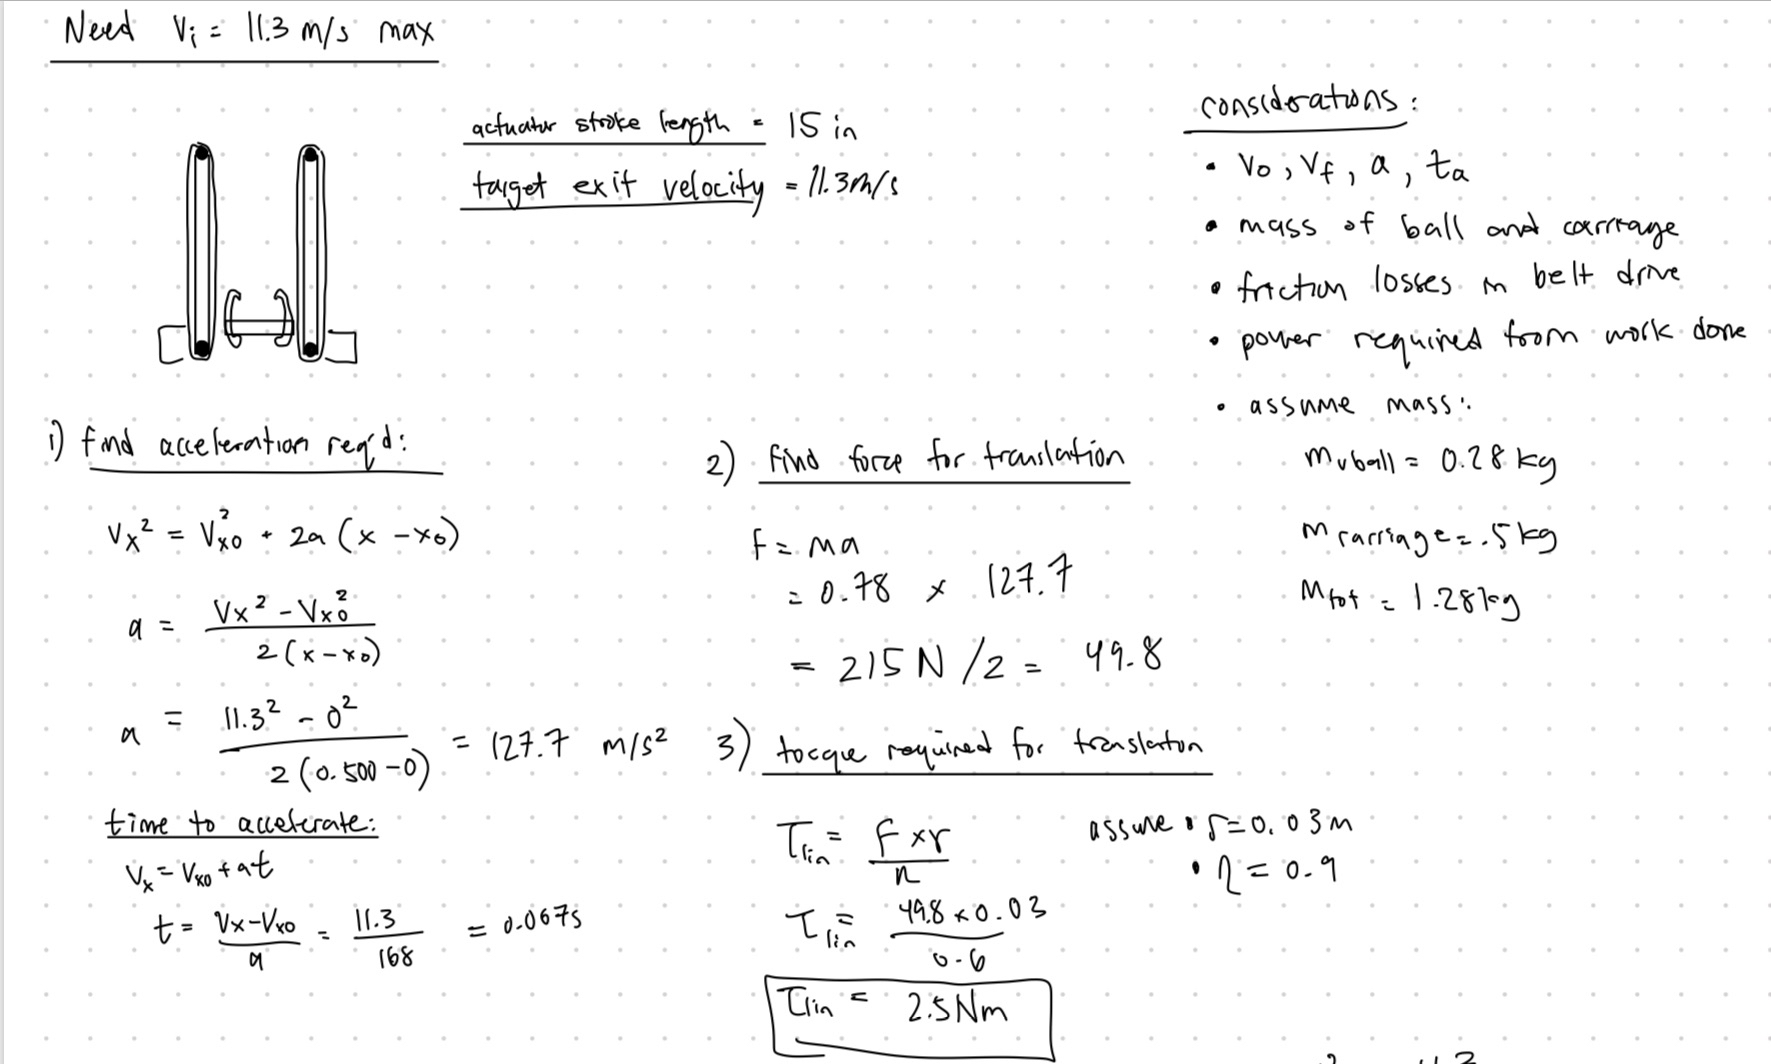 Need Vi = 11.3 m/s max
actuator stroke length = 15 in
target exit velocity = 11.3m/s
considerations:
• Vo, Vf, a, ta
• mass of ball and carriage
• friction losses in belt drive
• power required from work done
• assume mass:
mvball = 0.28 kg
mcarriage = .5 kg
Mtot = 1.28 kg
1) find acceleration req'd:
Vx² = Vx0² + 2a (x - x0)
a = (Vx² - Vx0²) / 2(x - x0)
a = (11.3² - 0²) / 2(0.500 - 0) = 127.7 m/s²
time to accelerate:
Vx = Vx0 + at
t = (Vx - Vx0) / a = 11.3 / 168 = 0.067s
2) find force for translation
f = ma
= 0.78 x 127.7
= 215 N /2 = 49.8
3) torque required for translation
τlin = F x r / η
assume • r = 0.03m
• η = 0.9
τlin = 49.8 x 0.03 / 0.6
τlin = 2.5 Nm